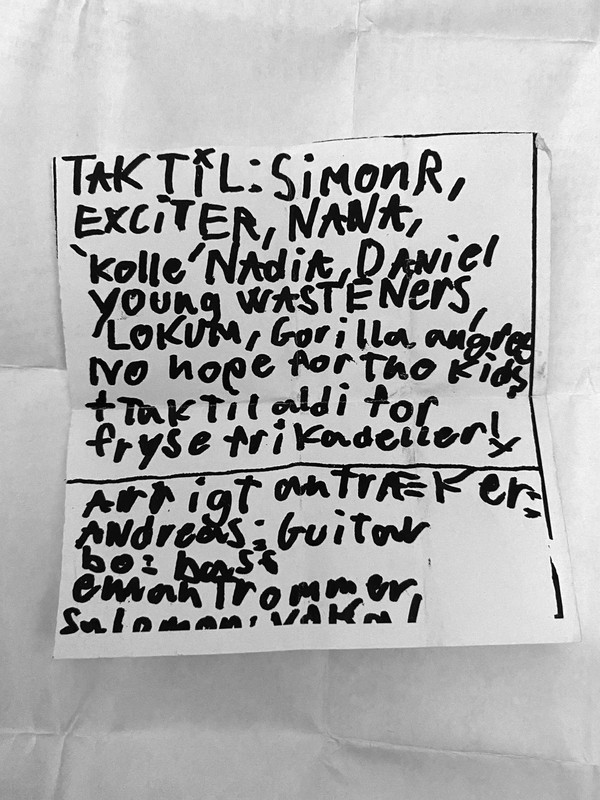 TAK TiL: SiMonR,
EXCiTER, NANA,
'kolle' NAdiA, DANiel
young WASTENers,
LOKUM, Gorilla angreb
No hope for the kids
+ Tak Til aldi for
fryse frikadeller!
Art igt anTRÆKer:
ANdreas: Guitar
bo: bass
eman Trommer,
Salomon: VoKal